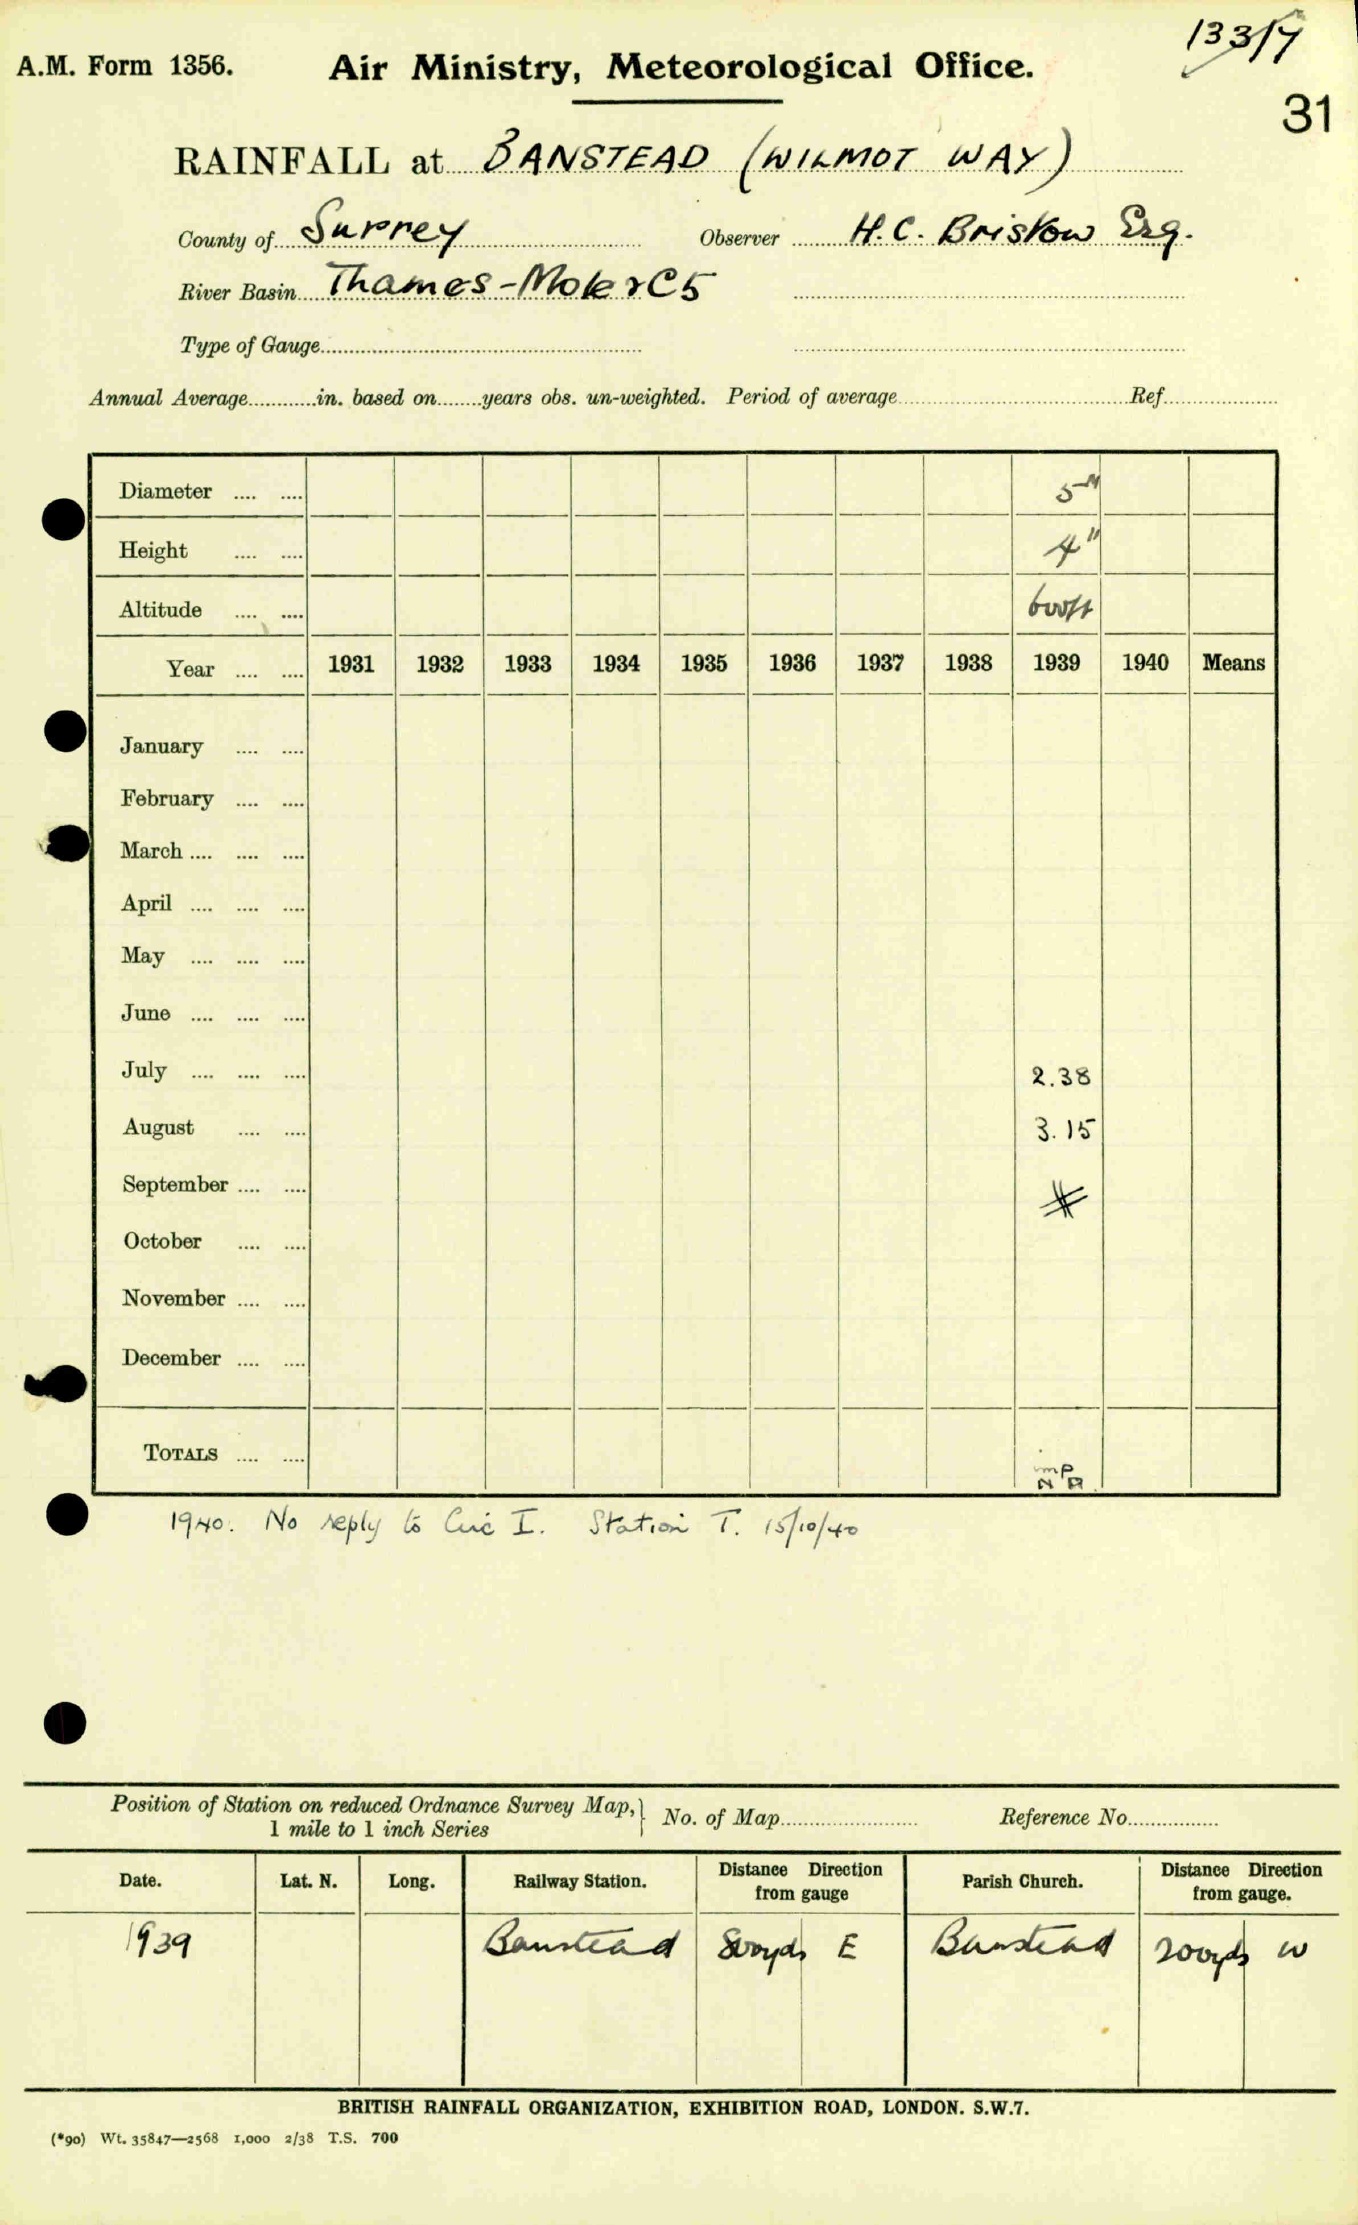 133/7
A.M. Form 1356. Air Ministry, Meteorological Office.
31
RAINFALL at BANSTEAD (WILMOT WAY)
County of Surrey Observer H.C. Bristow Esq.
River Basin Thames-Mole & C5
Type of Gauge
Annual Average in. based on years obs. un-weighted. Period of average Ref.
Diameter .... .... 5"
Height .... .... 4"
Altitude .... .... 600ft
Year .... .... 1931 1932 1933 1934 1935 1936 1937 1938 1939 1940 Means
January .... ....
February .... ....
March .... .... ....
April .... .... ....
May .... .... ....
June .... .... ....
July .... .... .... 2.38
August .... .... 3.15
September .... ....
October .... ....
November .... ....
December .... ....
TOTALS .... .... imp
1940. No reply to Circ I. Station T. 15/10/40
Position of Station on reduced Ordnance Survey Map, } No. of Map Reference No.
1 mile to 1 inch Series
Date. Lat. N. Long. Railway Station. Distance Direction from gauge Parish Church. Distance Direction from gauge.
1939 Banstead 800yds E Banstead 200yds W
BRITISH RAINFALL ORGANIZATION, EXHIBITION ROAD, LONDON. S.W.7.
(*90) Wt. 35847—2568 1,000 2/38 T.S. 700